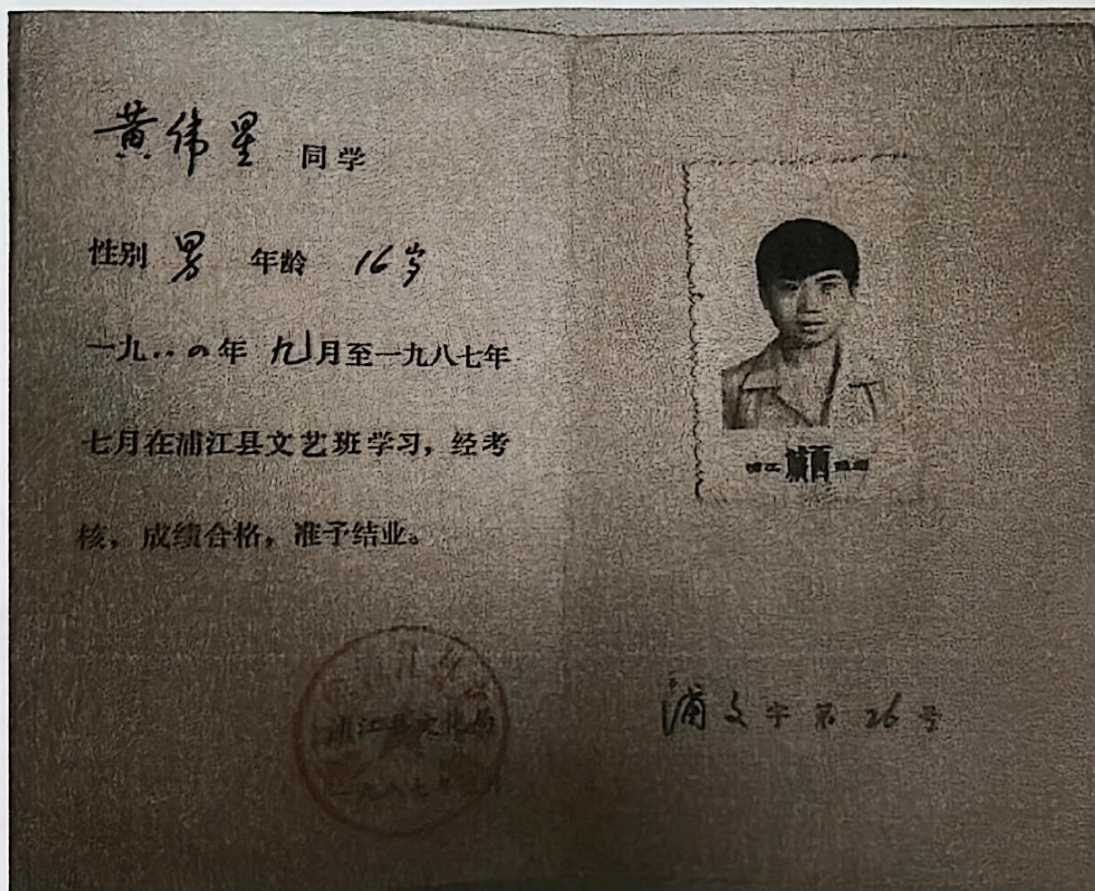 黄伟星 同学
性别 男 年龄 16岁
一九 年 九月至一九八七年
七月在浦江县文艺班学习，经考
核，成绩合格，准予结业。
浦江县文化局
一九八七年 月
城西
浦文字第26号